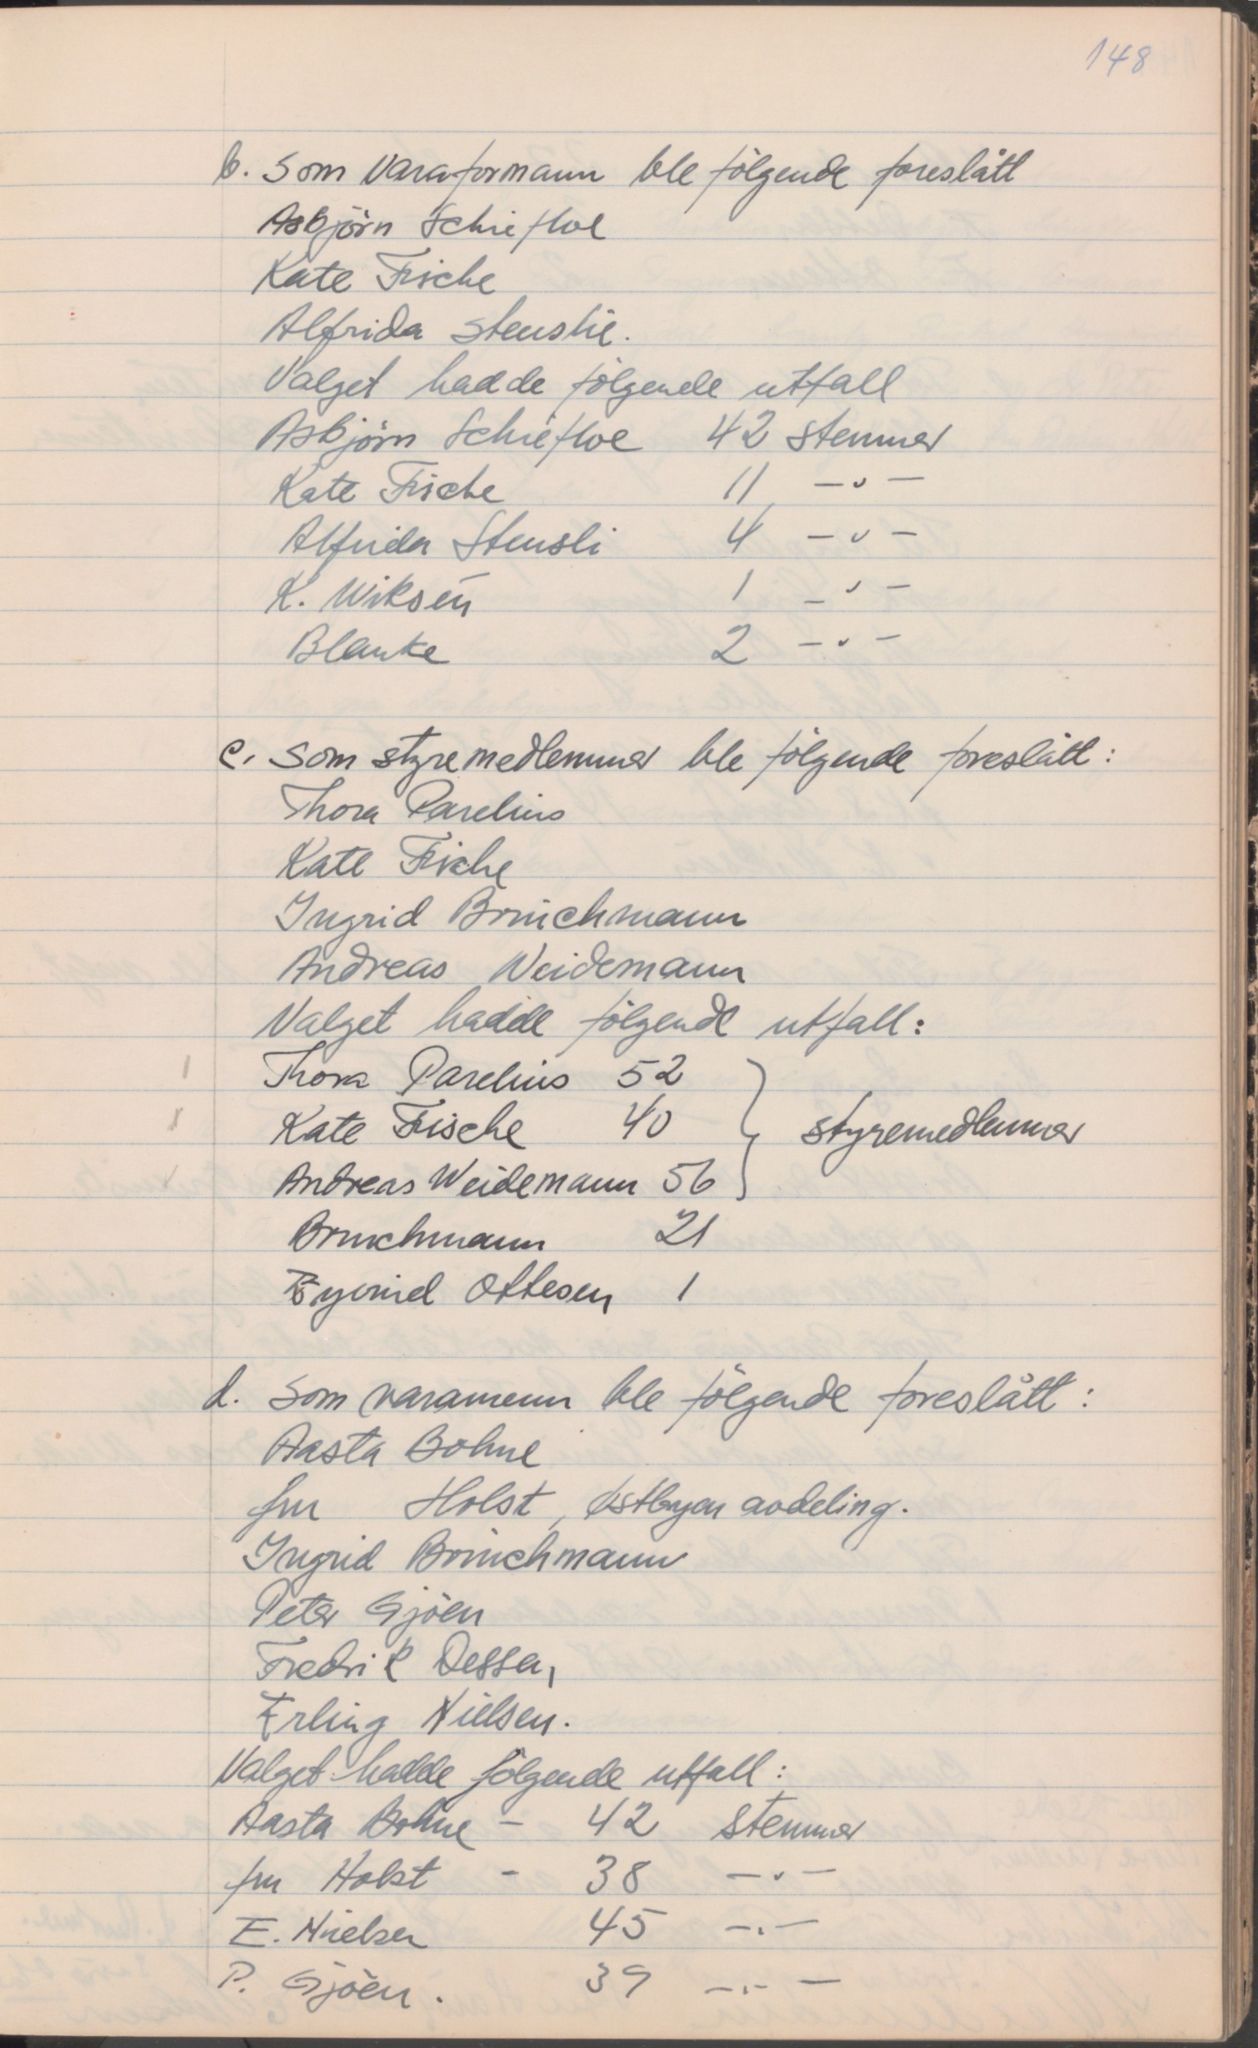 148
b. Som varaformann ble følgende foreslått
Asbjörn Schiefloe
Kate Fische
Alfrida Stenslie.
Valget hadde følgende utfall
Asbjörn Schiefloe 42 stemmer
Kate Fische 11 -"-
Alfrida Stensli 4 -"-
K. Wiksén 1 -"-
Blanke 2 -"-
c. Som styremedlemmer ble fölgende foreslått:
Thora Parelius
Kate Fische
Ingrid Brinchmann
Andreas Weidemann
Valget hadde fölgende utfall:
Thora Parelius 52
Kate Fische 40 } styremedlemmer
Andreas Weidemann 56
Brinchmann 21
Eyvind Ottesen 1
d. Som varamenn ble fölgende foreslått:
Aasta Bohne
fru Holst, Östbyen avdeling.
Ingrid Brinchmann
Peter Gjöen
Fredrik Dessen,
Erling Nielsen.
Valget hadde fölgende utfall:
Aasta Bohne - 42 stemmer
fru Holst - 38 -"-
E. Nielsen 45 -"-
P. Gjöen. 39 -"-